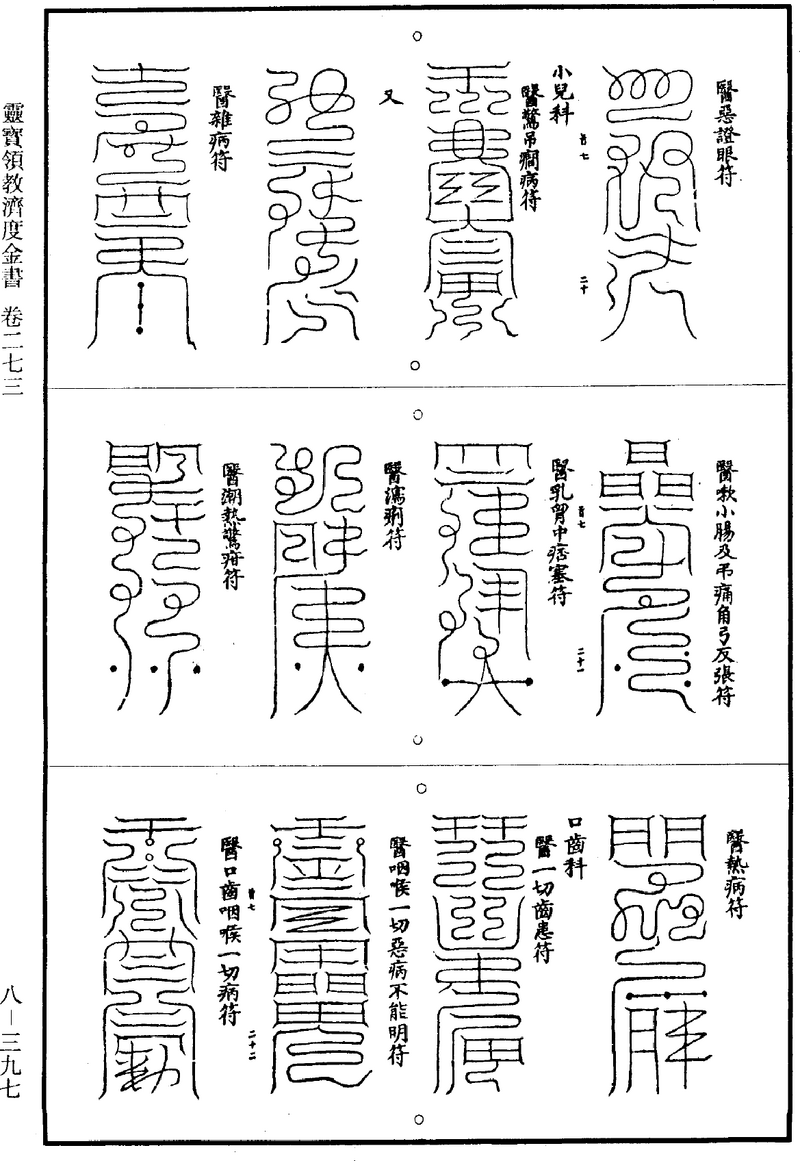 醫惡證眼符
小兒科
醫驚吊癇病符
又
醫雜病符
醫秋小腸及弔痛角弓反張符
醫乳胷中痞塞符
醫瀉痢符
醫潮熱驚疳符
醫熱病符
口齒科
醫一切齒患符
醫咽喉一切惡病不能明符
醫口齒咽喉一切病符
二十
二十一
二十二
靈寶領教濟度金書　卷二七三
八—三九七